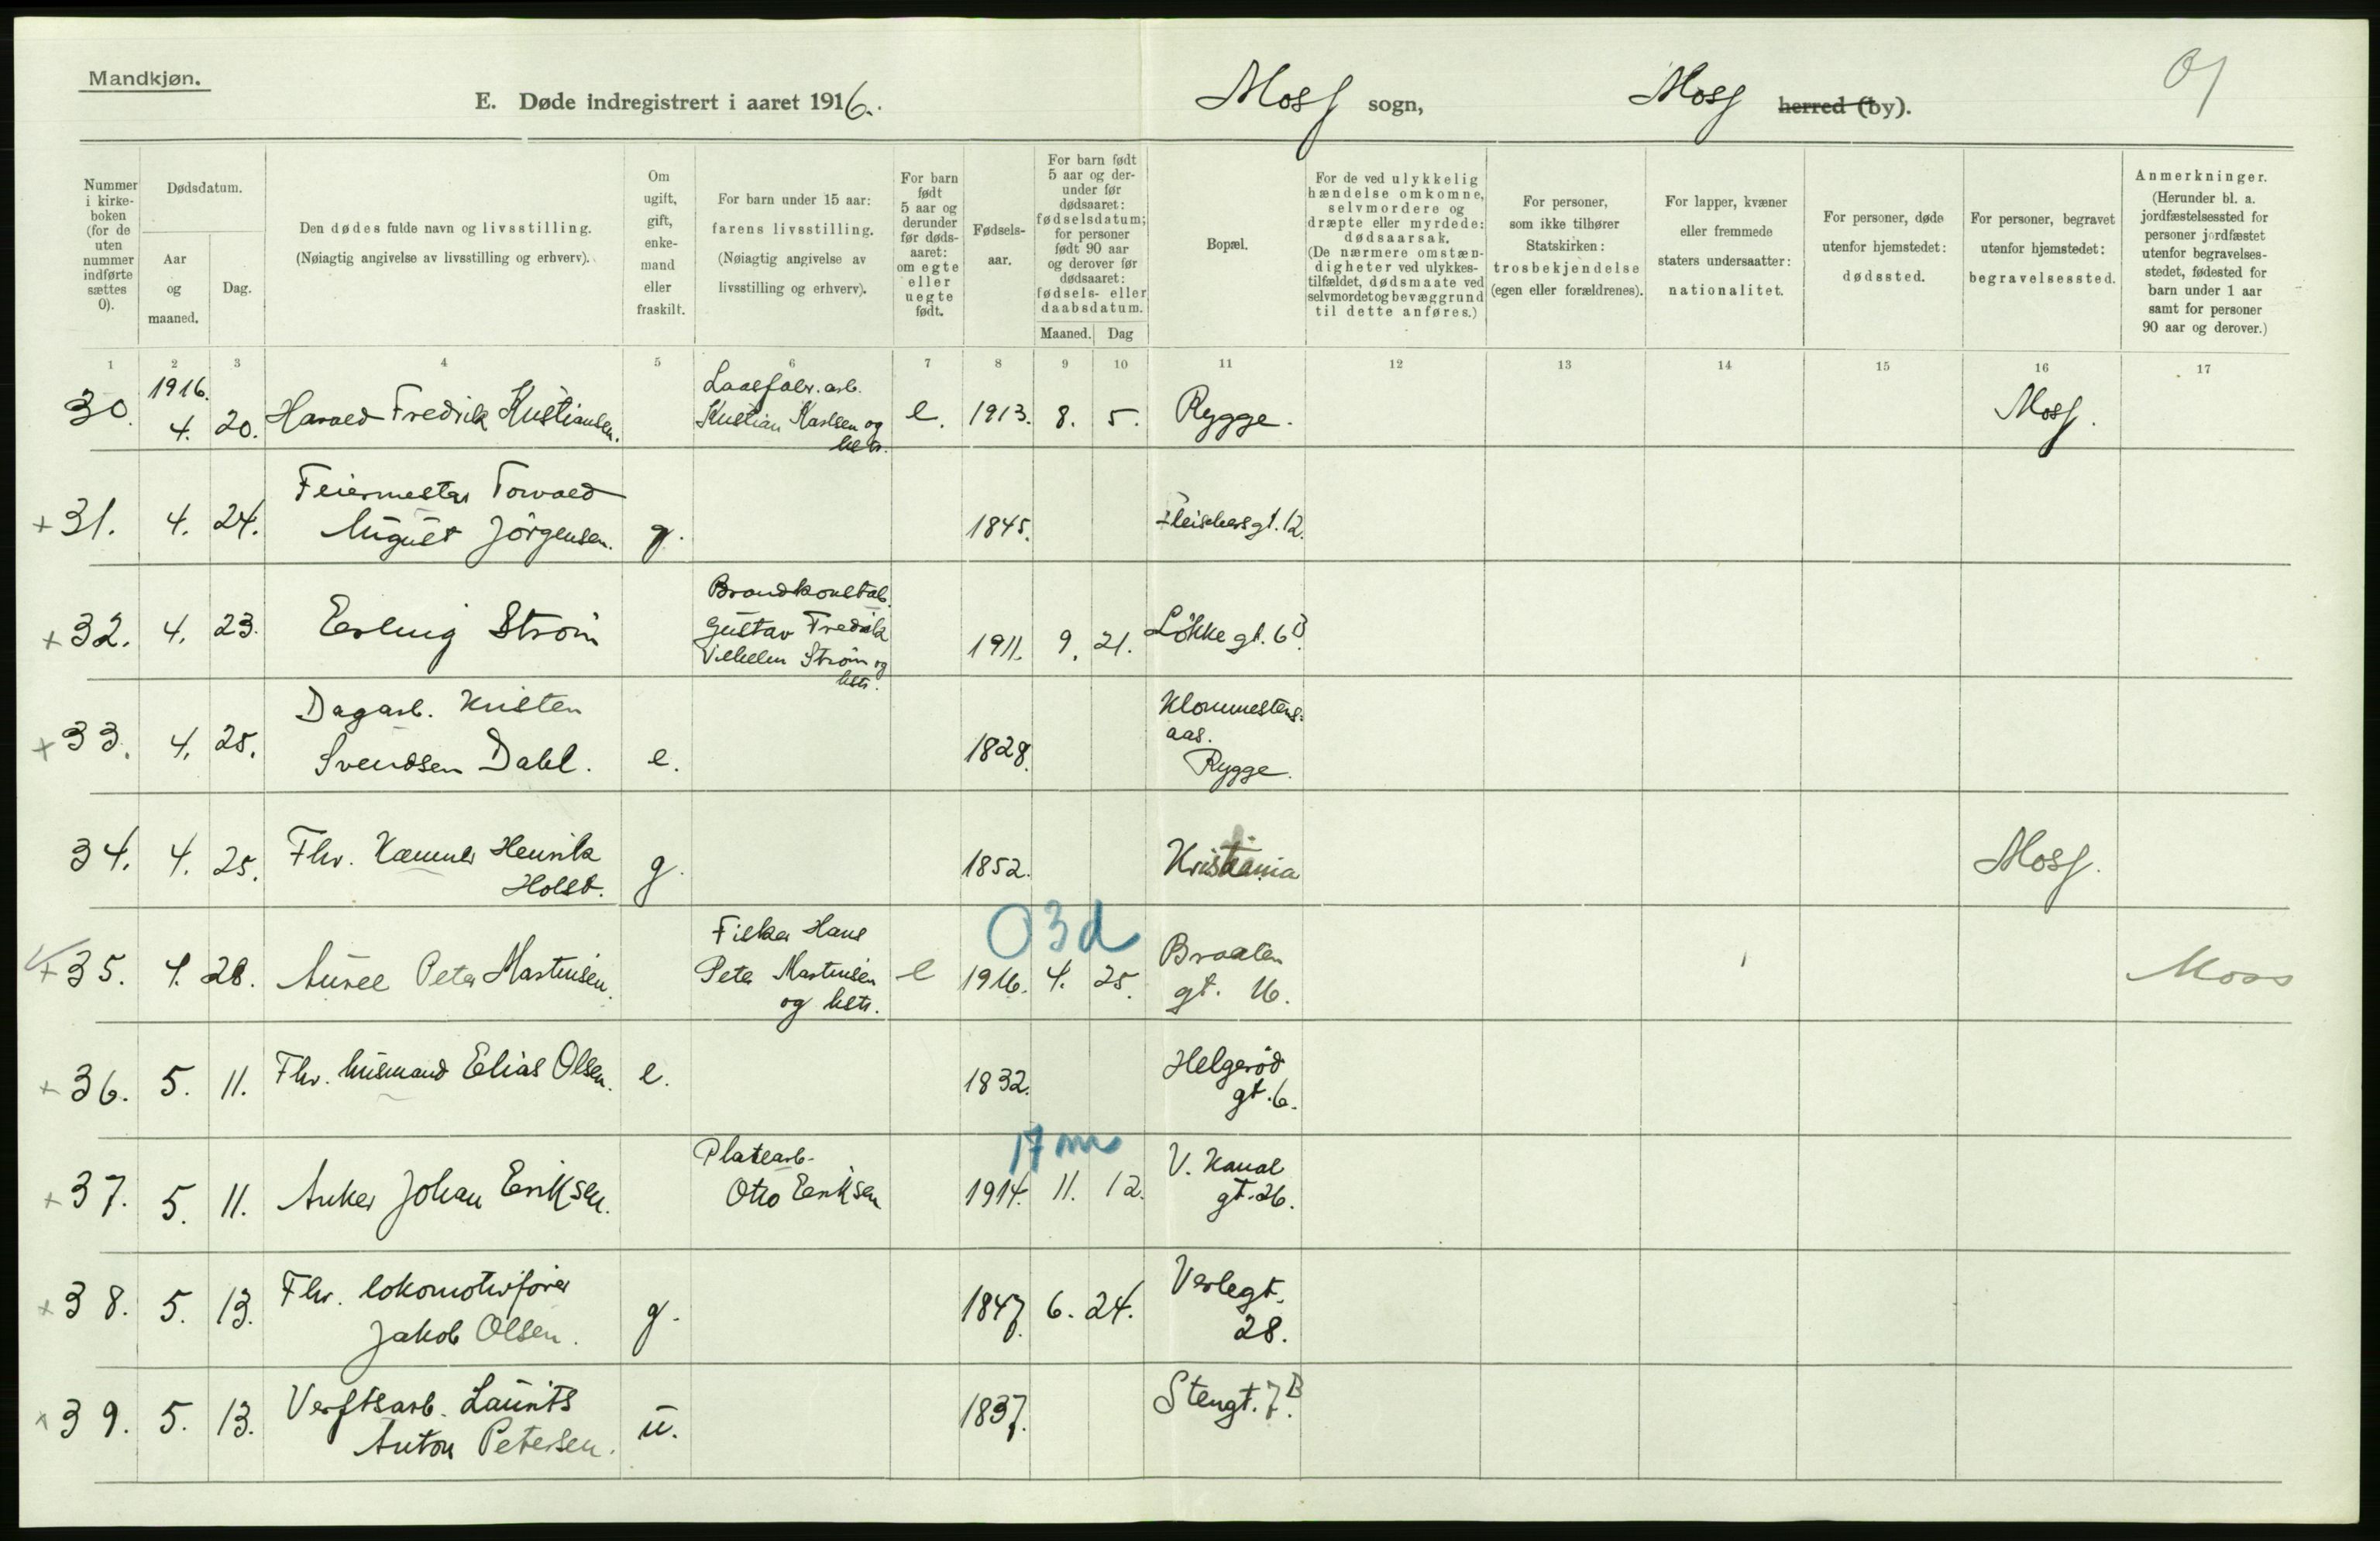 Mandkjøn.
E. Døde indregistrert i aaret 1916.
Moss sogn, Moss herred (by).
Nummer i kirke-boken (for de uten nummer indførte sættes 0).
Dødsdatum.
Aar og maaned.
Dag.
Den dødes fulde navn og livsstilling.
(Nøiagtig angivelse av livsstilling og erhverv).
Om ugift, gift, enke-mand eller fraskilt.
For barn under 15 aar:
farens livsstilling.
(Nøiagtig angivelse av livsstilling og erhverv).
For barn født 5 aar og derunder før døds-aaret: om egte eller uegte født.
Fødsels-aar.
For barn født 5 aar og der-under før dødsaaret: fødselsdatum; for personer født 90 aar og derover før dødsaaret: fødsels- eller daabsdatum.
Maaned. Dag
Bopæl.
For de ved ulykkelig hændelse omkomne, selvmordere og dræpte eller myrdede: dødsaarsak. (De nærmere omstæn-digheter ved ulykkes-tilfældet, dødsmaate ved selvmordet og bevæggrund til dette anføres.)
For personer, som ikke tilhører Statskirken: trosbekjendelse (egen eller forældrenes).
For lapper, kvæner eller fremmede staters undersaatter: nationalitet.
For personer, døde utenfor hjemstedet: dødssted.
For personer, begravet utenfor hjemstedet: begravelsessted.
Anmerkninger.
(Herunder bl. a. jordfæstelsessted for personer jordfæstet utenfor begravelses-stedet, fødested for barn under 1 aar samt for personer 90 aar og derover.)
1 2 3 4 5 6 7 8 9 10 11 12 13 14 15 16 17
1916.
Kristian Karlsen og
hstr.
30. 4. 20. Harald Fredrik Kristiansen. e. 1913. 8. 5. Rygge. Moss.
Feiermester Torvald
+ 31. 4. 24. August Jörgensen. g. 1845. Fleischersgt. 12.
Brandkonstab.
Gustav Fredrik
Vilhelm Ström og
hstr.
+ 32. 4. 23. Erling Ström 1911. 9. 21. Lökkegt. 6B.
Dagarb. Kristen
+ 33. 4. 25. Svendsen Dahl. e. 1828.
aas.
Rygge.
34. 4. 25. Fhv. Kæmner Henrik
Holst. g. 1852. Kristiania Moss.
03d
Fisker Hans
Peter Martinsen
og hstr.
+ 35. 4. 28. Peter Martinsen. e 1916. 4. 25. Braaten
gt. 16. Moss
+ 36. 5. 11. Fhv. husmand Elias Olsen. e. 1832. Helgeröd
gt. 6.
17 m
Platearb.
Otto Eriksen
+ 37. 5. 11. Anker Johan Eriksen. 1914. 11. 12. V. Kanal
gt. 26.
+ 38. 5. 13. Fhv. lokomotivförer
Jakob Olsen. g. 1847. 6. 24. Verlegt.
28.
+ 39. 5. 13. Verftsarb. Laurits
Anton Petersen. u. 1837. Stengt. 7B.